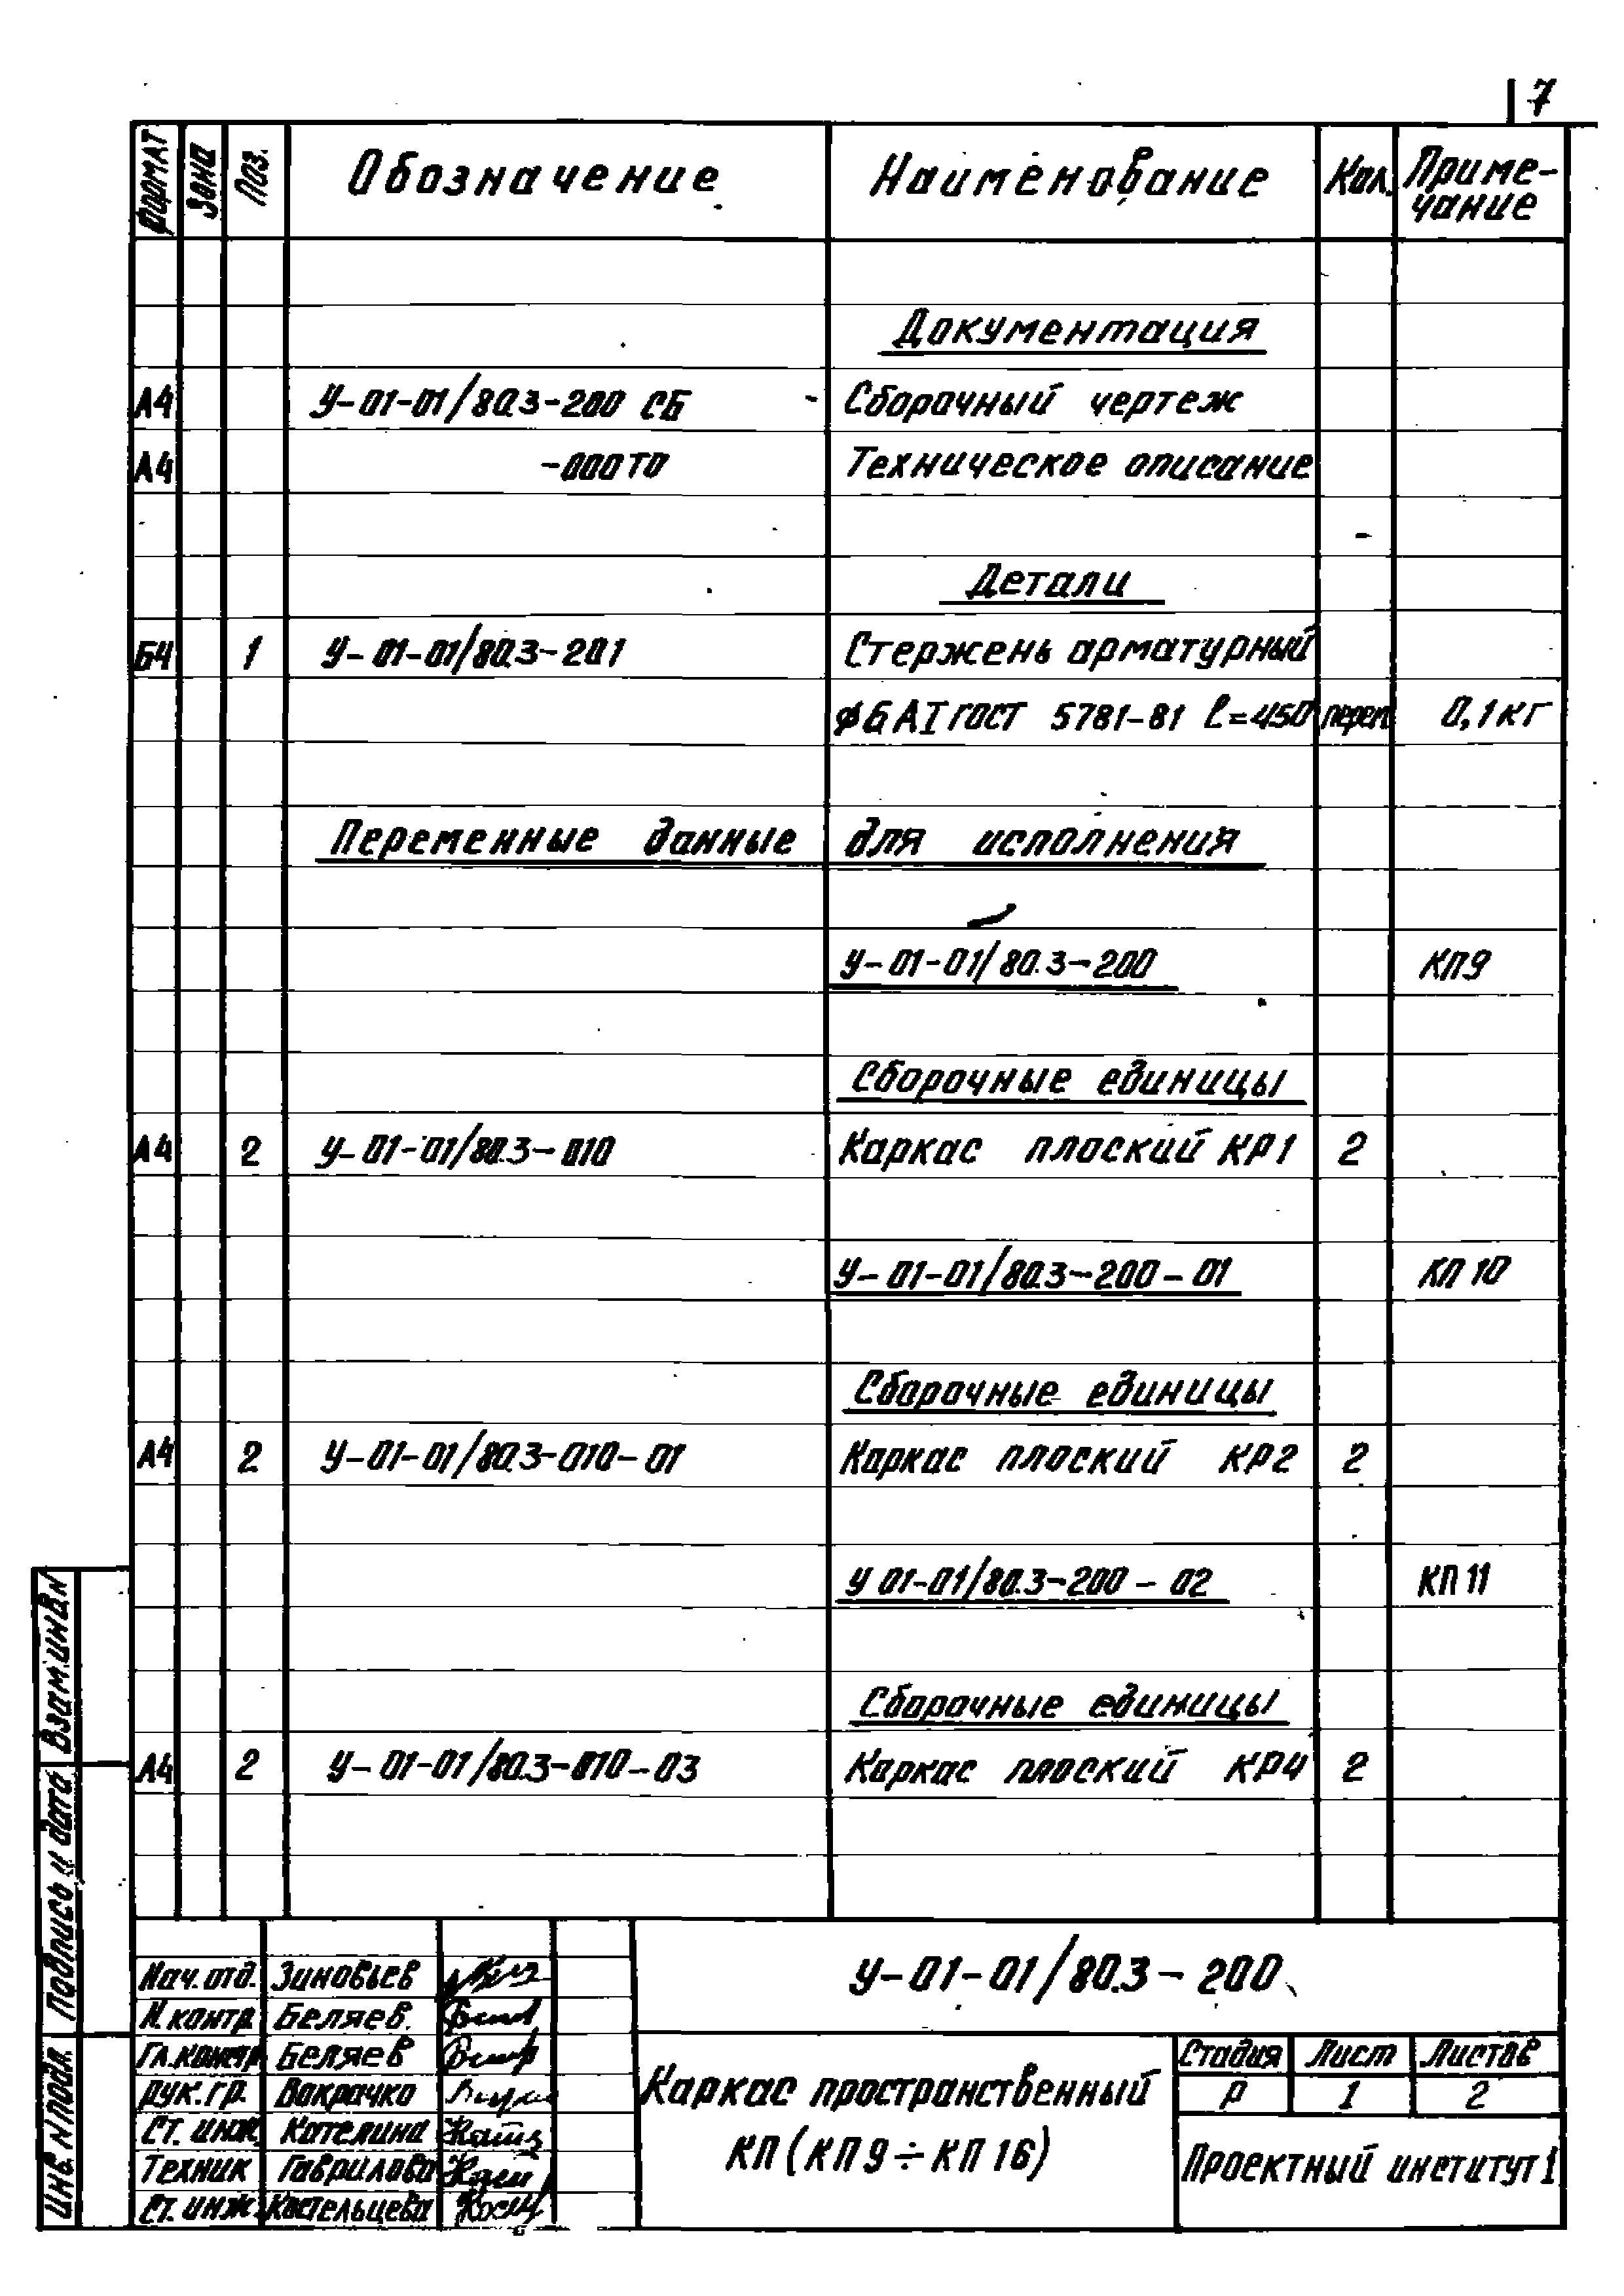 7
Формат Зона Поз. Обозначение Наименование Кол. Приме-
чание
Документация
А4 У-01-01/80.3-200 СБ Сборочный чертеж
А4 -000ТО Техническое описание
Детали
Б4 1 У-01-01/80.3-201 Стержень арматурный
ф6 АI ГОСТ 5781-81 ℓ=450 перем 0,1кг
Переменные данные для исполнения
У-01-01/80.3-200 КП9
Сборочные единицы
А4 2 У-01-01/80.3-010 Каркас плоский КР1 2
У-01-01/80.3-200-01 КП10
Сборочные единицы
А4 2 У-01-01/80.3-010-01 Каркас плоский КР2 2
У 01-01/80.3-200-02 КП11
Сборочные единицы
А4 2 У-01-01/80.3-010-03 Каркас плоский КР4 2
Взам.инв.N
Подпись и дата
Инв.N подл.
Нач.отд. Зиновьев
Н.контр. Беляев.
Гл.констр. Беляев
Рук.гр. Вакрачко
Ст. инж. Кателина
Техник Гаврилова
Ст. инж. Костельцева
У-01-01/80.3-200
Каркас пространственный
КП (КП9÷КП16)
Стадия Лист Листов
Р 1 2
Проектный институт 1